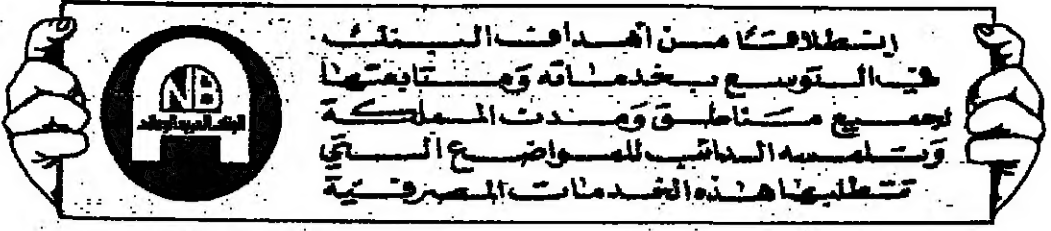 انطلاقا من أهداف البنك
في التوسع بخدماته ومتابعتها
لجميع مناطق ومدن المملكة
وتلمسه الدائب للمواضع التي
تتطلبها هذه الخدمات المصرفية
NB
البنك